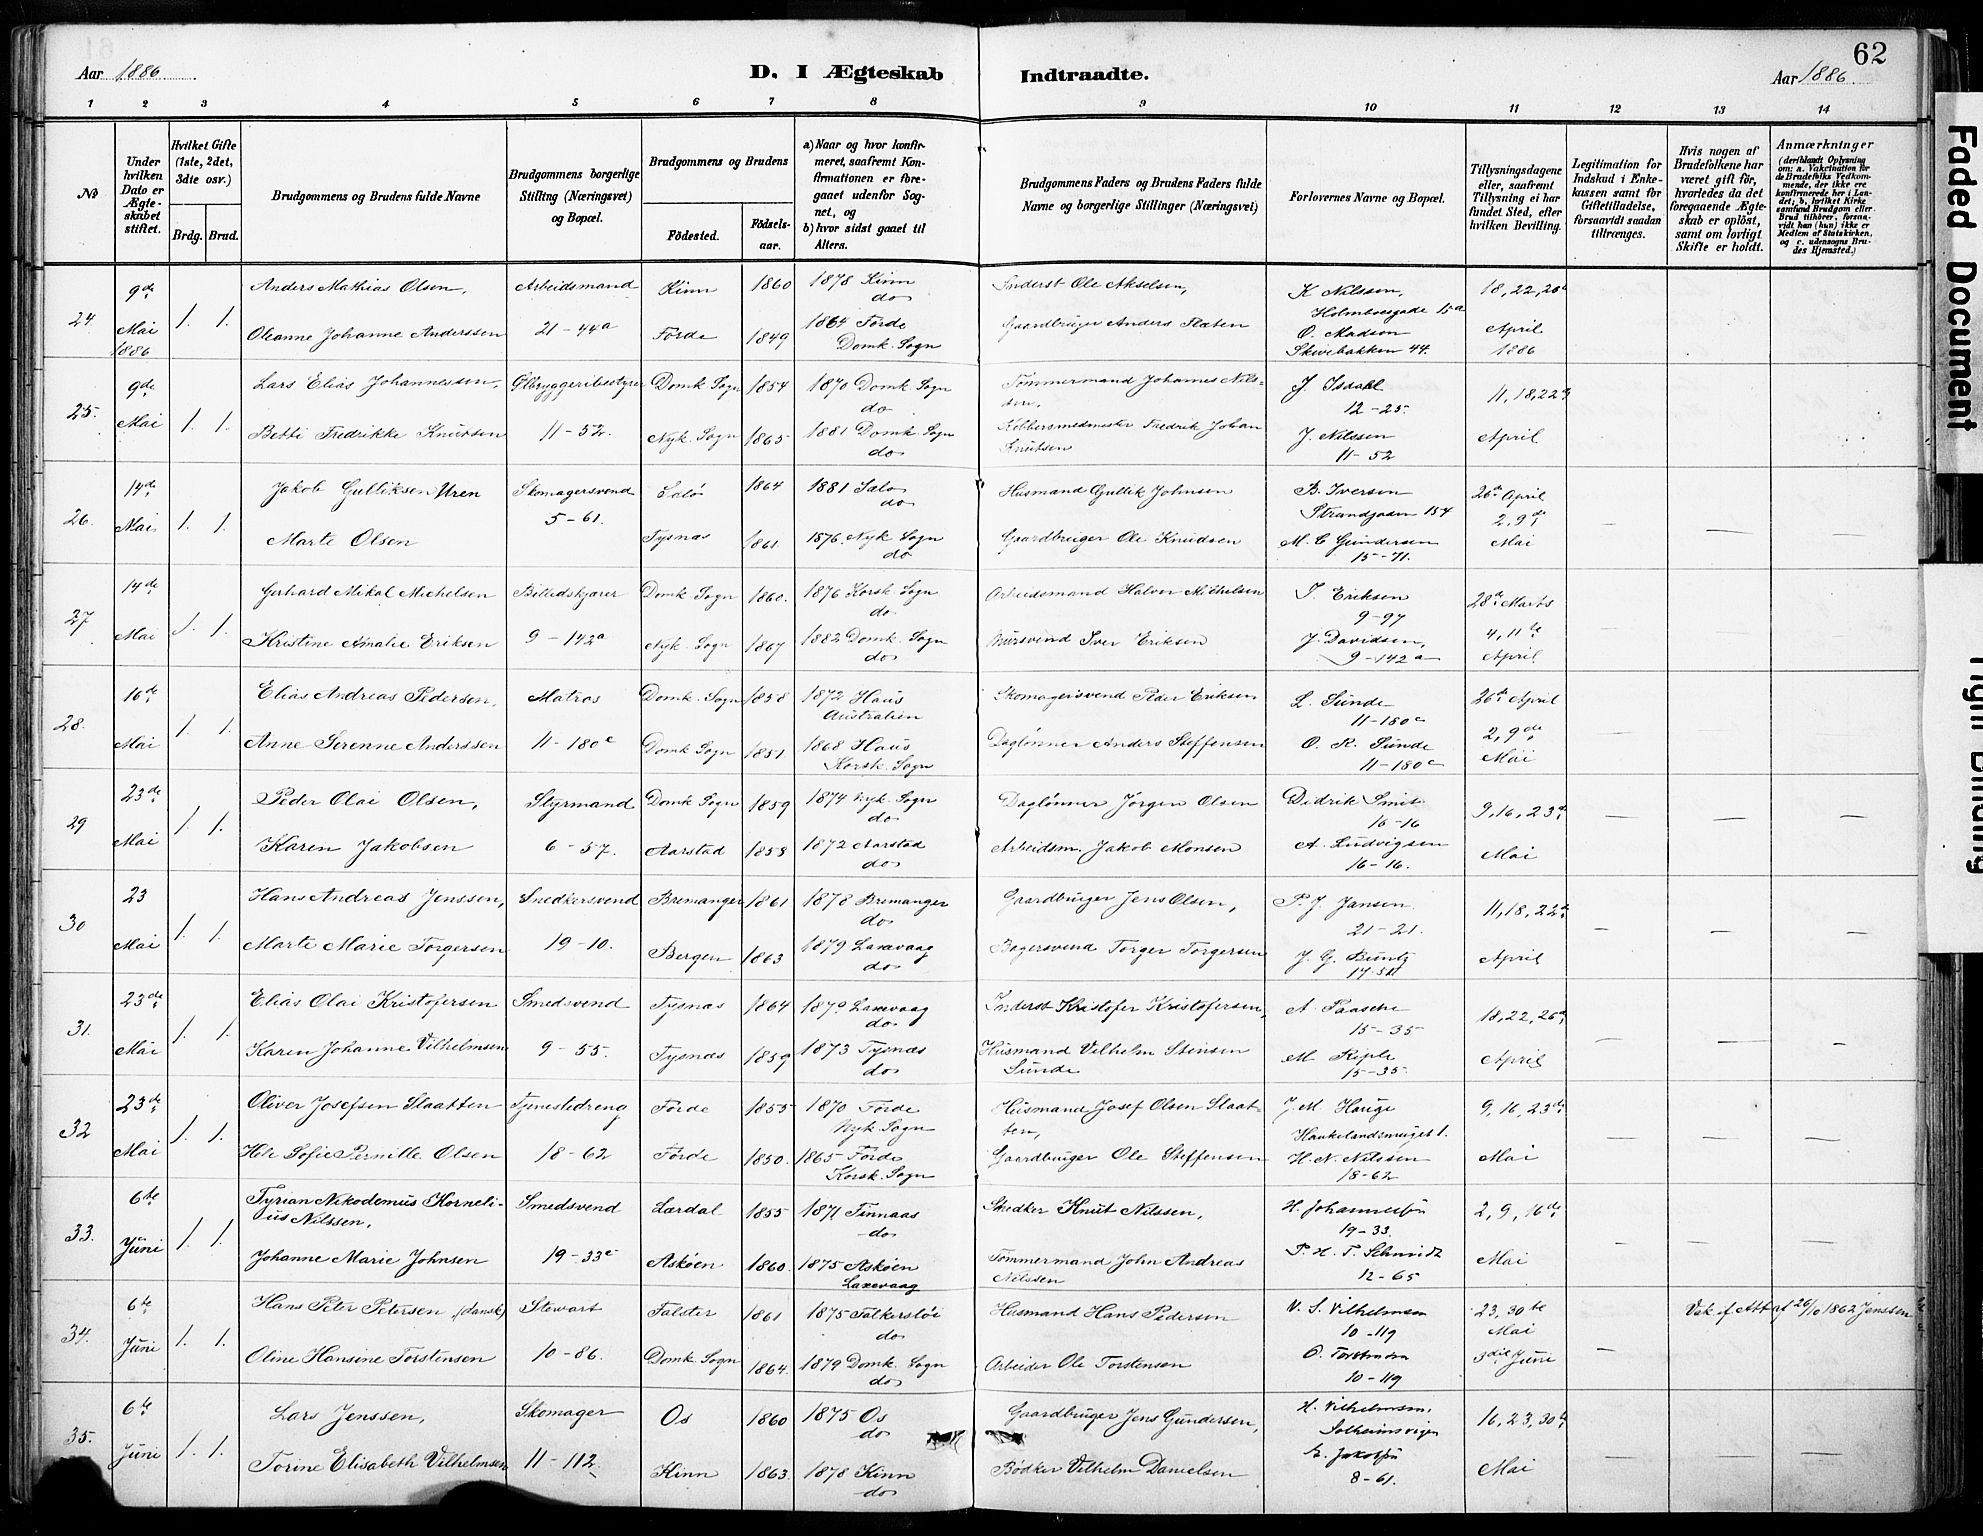 Aar 1886
D. I Ægteskab Indtraadte.
62
Aar 1886
1 2 3 4 5 6 7 8 9 10 11 12 13 14
No
Under hvilken Dato er Ægteskabet stiftet.
Hvilket Gifte (1ste, 2det, 3die osv.)
Brdg. Brud.
Brudgommens og Brudens fulde Navne
Brudgommens borgerlige Stilling (Næringsvei) og Bopæl.
Brudgommens og Brudens
Födested.
Födselsaar.
a) Naar og hvor konfirmeret, saafremt Konfirmationen er foregaaet udenför Sognet, og
b) hvor sidst gaaet til Alters.
Brudgommens Faders og Brudens Faders fulde Navne og borgerlige Stillinger (Næringsvei)
Forlovernes Navne og Bopæl.
Tillysningsdagene eller, saafremt Tillysning ei har fundet Sted, efter hvilken Bevilling.
Legitimation for Indskud i Enkekassen samt for Giftetilladelse, forsaavidt saadan tiltrænges.
Hvis nogen af Brudefolkene har været gift för, hvorledes da det foregaaende Ægteskab er oplöst, samt om lovligt Skifte er holdt.
Anmærkninger
(deriblandt Oplysning om: a. Vakcination for de Brudefolks Vedkommende, der ikke ere konfirmerede her i Landet; b, hvilket Kirkesamfund Brudgom eller Brud tilhörer, forsaavidt han (hun) ikke er Medlem af Statskirken, og c. udensogns Brudes Hjemsted.)
24. 9de Mai 1886 1. 1. Anders Mathias Olsen, Arbeidsmand Kinn 1860 1878 Kinn do Inderst Ole Akselsen, K Nilssen, Holmboesgade 15a 18, 22, 26de
Oleanne Johanne Anderssen 21-44a Förde 1849 1864 Förde Domk. Sogn Gaardbruger Anders Flaten O. Madsen Skivebakken 44. April 1886
25. 9de Mai 1. 1. Lars Elias Johannessen, Ølbryggeribestyrer Domk Sogn 1854 1870 Domk Sogn do Tömmermand Johannes Nilssen, J. Isdahl 12-25. 11, 18, 22de
Betti Fredrikke Knutsen 11-52. Nyk. Sogn 1865 1881 Domk. Sogn do Kobbersmedmester Fredrik Johan Knutsen J. Nilssen 11-52 April
26. 14de Mai 1. 1. Jakob Gulliksen Uren Skomagersvend 5-61. 1864 1881 do Husmand Gullik Johnsen B. Iversen Strandgaden 154 26de April
Marte Olsen Tysnæs 1861. 1876. Nyk Sogn do Gaardbruger Ole Knudsen M. C Gundersen 15-71. 2, 9de Mai — — —
27 14de Mai 1. 1. Gerhard Mikal Michelsen Billedskjærer Domk Sogn 1860. 1876 Korsk Sogn do Arbeidsmand Halvor Michelsen I. Eriksen 9-97 28de Marts
Kristine Amalie Eriksen 9-142a Nyk. Sogn 1867 1882 Domk. Sogn do Mursvend Iver Eriksen J. Davidsen, 9-142a 4, 11te April —
28. 16de Mai 1. 1. Elias Andreas Pedersen, Matros Domk. Sogn 1858 1872 Haus Australien Skomagersvend Peder Eriksen L. Sunde 11-180c 26de April
Anne Serenne Anderssen 11-180c Domk Sogn 1851. 1868 Haus Korsk. Sogn Daglönner Anders Steffensen O. R. Sunde 11-180c 2, 9de Mai — —
29 23de Mai 1. 1. Peder Olai Olsen, Styrmand Domk Sogn 1859 1874 Nyk. Sogn do Daglönner Jörgen Olsen Didrik Smit 16-16 9, 16, 23de
Karen Jakobsen 6-57. Aarstad 1858 1872 Aarstad do Arbeidsm. Jakob Monsen A. Ludvigsen 16-16. Mai — — —
30 23 Mai 1. 1. Hans Andreas Jenssen, Snedkersvend Bremanger 1861 1878 Bremanger do Gaardbruger Jens Olsen, P. J. Jansen 21-21. 11, 18, 22de
Marte Marie Torgersen 19-10. Bergen 1863 1879 Laxevaag do Bagersvend Torger Torgersen J. G. Buntz April — — —
31. 23de Mai 1. 1. Elias Olai Kristofersen Smedsvend Tysnæs 1864 1879 Laxevaag do Inderst Kristofer Kristofersen, A. Paasche 15-35 18, 22, 26de
Karen Johanne Vilhelmsen 9-55. Tysnæs 1859 1873 Tysnæs do Husmand Vilhelm Stensen Sunde M. 15-35 April — — —
32 23de Mai 1. 1. Oliver Josefsen Slaatten Tjenestedreng Förde 1855 1870 Förde Nyk. Sogn Husmand Josef Olsen Slaatten, J. M. Hauge Haukelandsveiget 1. 9, 16, 23de
Sofie Pernille Olsen 18-62 Förde 1850. 1865 Förde Korsk. Sogn Gaardbruger Ole Steffensen H. N. Nilssen 18-62 Mai — — —
33. 6te Juni 1. 1. Tyrian Nikodemus Kornelius Nilssen, Smedsvend Lærdal 1855 1871 Finnaas do Snedker Knut Nilssen, H. Johannessen 19-33. 2, 9, 16de
Johanne Marie Johnsen 19-33c Askøen 1860. 1875 Askøen Laxevaag Tömmermand John Andreas Nilssen P. H. T. Schmidt 12-65 Mai — — —
34. 6te Juni 1. 1. Hans Peter Petersen (dansk) Stewart Falster 1861 1875 do Husmand Hans Pedersen V. S. Vilhelmsen 10-119 23, 30te Mai Vak. f Att af 26/10 1862 Jenssen
Oline Hansine Torstensen 10-86. Domk. Sogn 1864. 1879 Domk. Sogn do Arbeider Ole Torstensen O. Torstensen 10-119 3die Juni —
35. 6te Juni 1. 1. Lars Jenssen, Skomager Os 1860 1875 Os do Gaardbruger Jens Gundersen, H. Vilhelmsen, Solheimsvigen 16, 23, 30te
Torine Elisabeth Vilhelmsen 11-112 Kinn 1863. 1878 Kinn do Bödker Vilhelm Danielsen 8-61. Mai — — —
Faded Document
Tight Binding